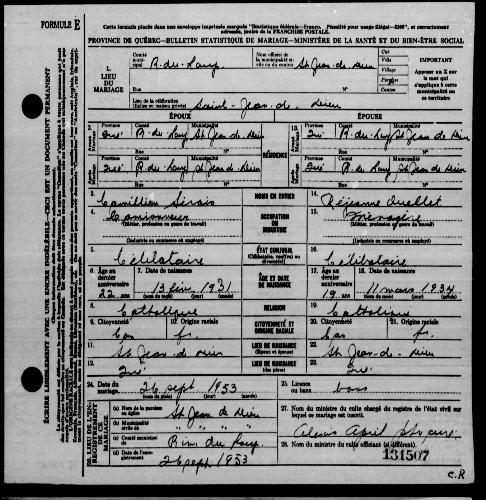 FORMULE E
Cette formule placée dans une enveloppe imprimée marquée "Statistique fédérale—Franco. Pénalité pour usage illégal—$300", et correctement adressée, jouira de la FRANCHISE POSTALE.
PROVINCE DE QUÉBEC—BULLETIN STATISTIQUE DE MARIAGE—MINISTÈRE DE LA SANTÉ ET DU BIEN-ÊTRE SOCIAL
ÉCRIRE LISIBLEMENT AVEC UNE ENCRE INDÉLÉBILE—CECI EST UN DOCUMENT PERMANENT
1. LIEU DU MARIAGE
Comté municipal R.-du-Loup
Nom officiel de la municipalité civile St Jean de Dieu
Cité
Ville
Village
Par.
Canton
IMPORTANT
Apposer un X sur le mot qui s'applique à cette municipalité ou ce territoire
Lieu de la célébration (Église ou maison privée) Saint-Jean-de-Dieu
ÉPOUX
ÉPOUSE
Province Comté Municipalité
Qué R.-du-Loup St Jean de Dieu
Rue No
RÉSIDENCE
Province Comté Municipalité
Qué R.-du-Loup St Jean de Dieu
Rue No
Province Comté Municipalité
Qué R.-du-Loup St Jean de Dieu
Rue No
Province Comté Municipalité
Qué R.-du-Loup St Jean de Dieu
Rue No
3. Camillien Sirois
NOMS EN ENTIER
14. Réjeanne Ouellet
4. Camionneur
(Métier, profession ou genre de travail)
OCCUPATION OU INDUSTRIE
15. Ménagère
(Métier, profession ou genre de travail)
(Industrie ou commerce où employé)
(Industrie ou commerce où employé)
5. Célibataire
ÉTAT CONJUGAL
(Célibataire, veuf(ve) ou divorcé(e))
16. Célibataire
6. Age au dernier anniversaire 22 ans
7. Date de naissance 13 fév. 1931
(nom du mois) (jour) (année)
ÂGE ET DATE DE NAISSANCE
17. Age au dernier anniversaire 19 ans
18. Date de naissance 11 mars 1934
(nom du mois) (jour) (année)
8. Catholique
RELIGION
Catholique
9. Citoyenneté Can
10. Origine raciale fr.
CITOYENNETÉ ET ORIGINE RACIALE
20. Citoyenneté Can
21. Origine raciale fr.
11. St Jean de Dieu
LIEU DE NAISSANCE (Époux et épouse)
22. St Jean-de-Dieu
12. Qué
LIEU DE NAISSANCE (des pères)
23. Qué
24. Date du mariage 26 sept 1953
(nom du mois) (jour) (année)
25. Licence ou bans bans
26. LIEU DE L'ENREGISTREMENT DE CE MARIAGE
(a) Nom de la paroisse ou église St Jean de Dieu
(b) Municipalité civile de " " " "
(c) Comté municipal Riv. du Loup.
(d) Date de l'enregistrement 26 sept 1953
27. Nom du ministre du culte chargé du registre de l'état civil sur lequel ce mariage est inscrit.
28. Nom du ministre du culte officiant (si différent).
131507
C.R